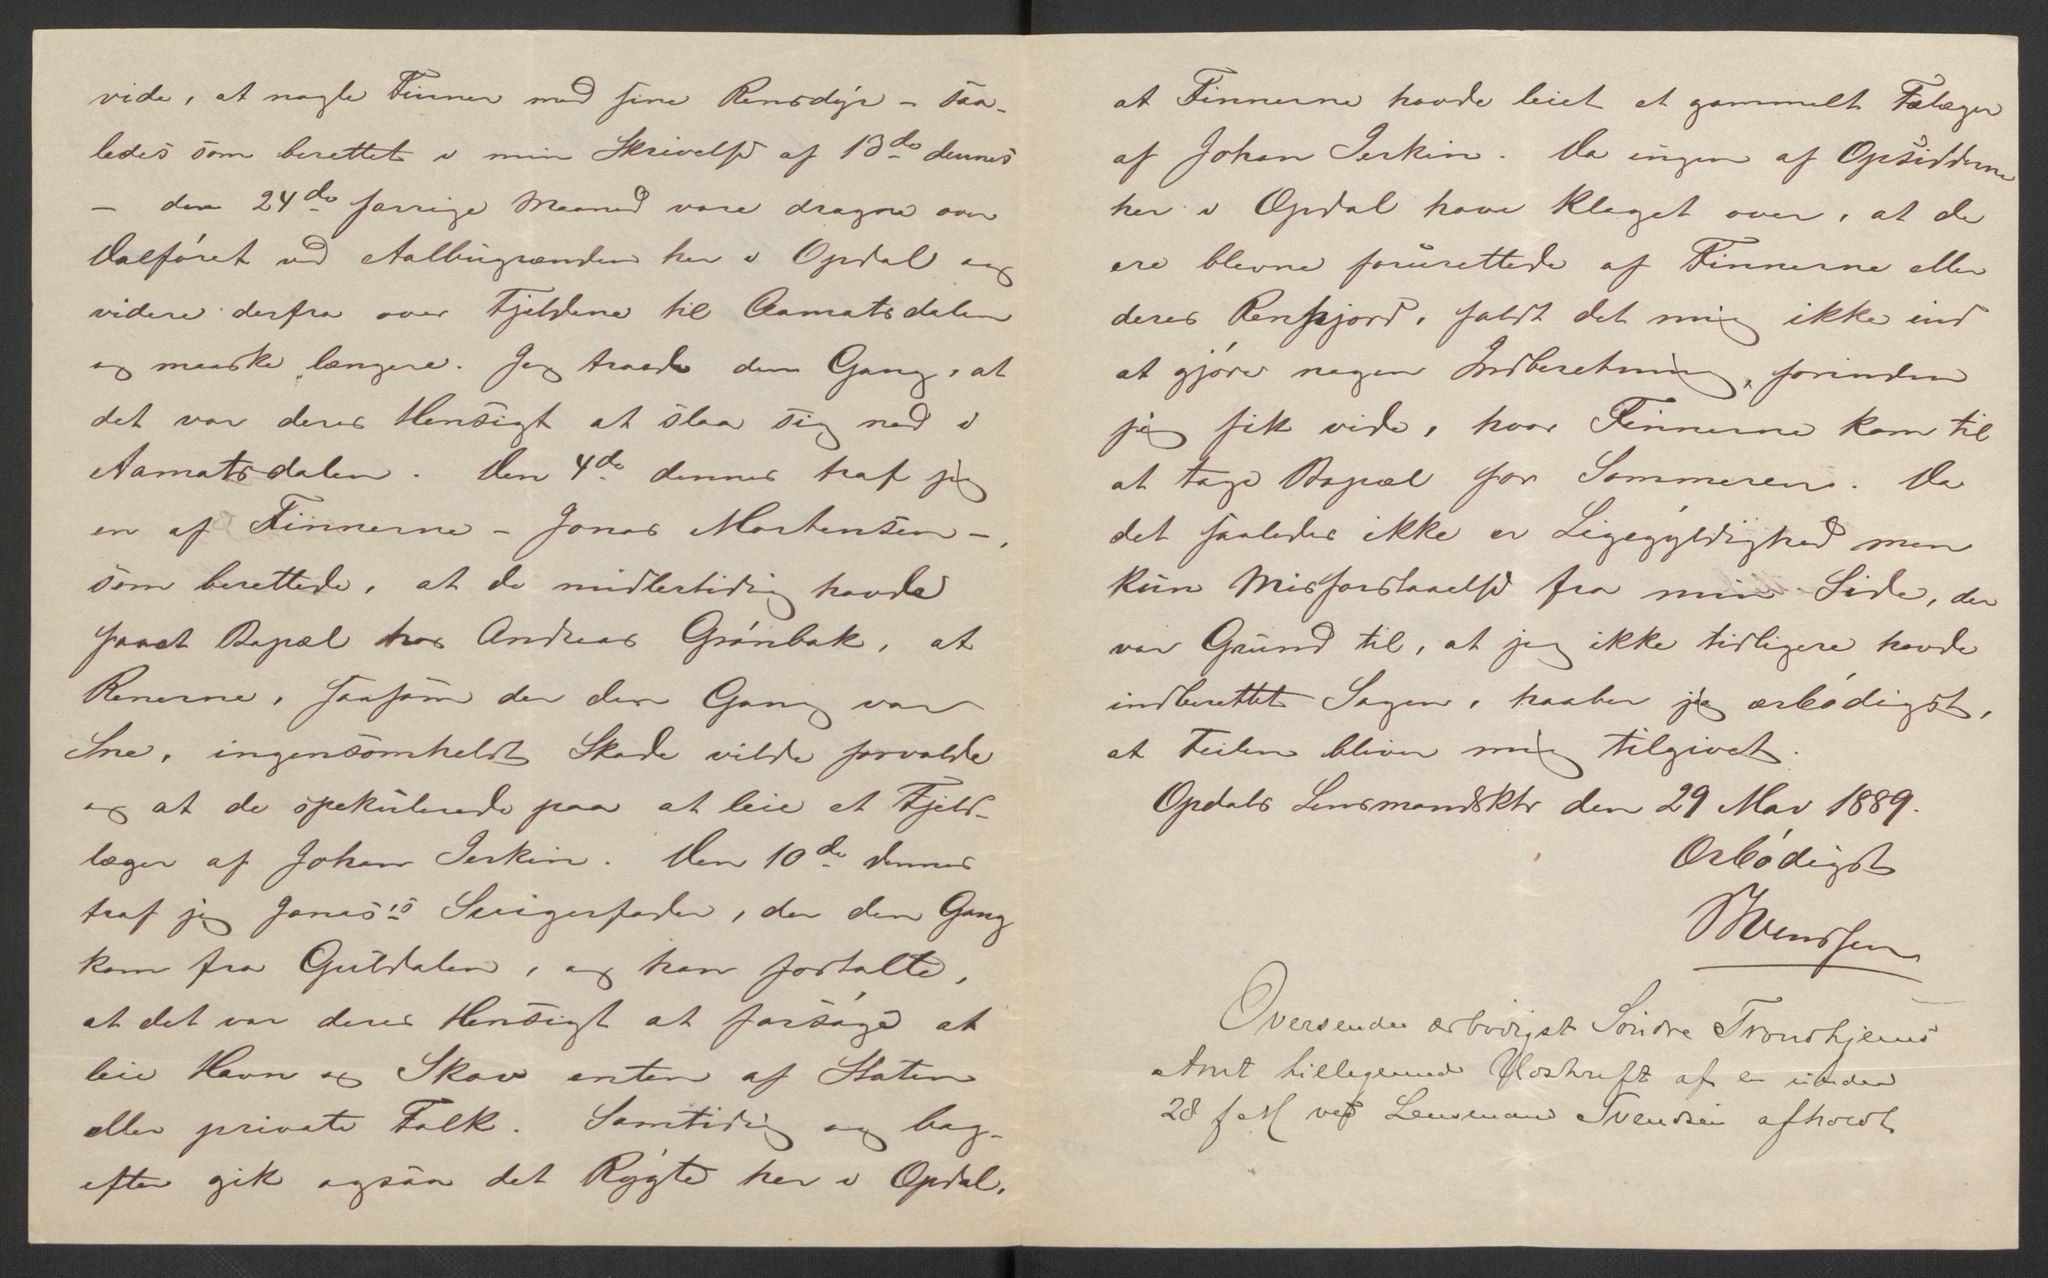 vide, at nogle Finner med sine Rensdyr – saa-
ledes som berettet i min Skrivelse af 13de dennes
– den 24de forrige Maaned vare dragne over
Dalføret ved Aalbugrænden her i Opdal og
videre derfra over Fjeldene til Aamotsdalen
og maaske længere. Jeg troede den Gang, at
det var deres Hensigt at slaa sig ned i
Aamotsdalen. Den 4de dennes traf jeg
en af Finnerne – Jonas Mortensen –,
som berettede, at de midlertidig havde
faaet Bopæl hos Andreas Grønbak, at
Renerne, saasom der den Gang var
Sne, ingensomheldst Skade vilde forvolde
og at de spekulerede paa at leie et Fjeld-
læger af Johan Jerkin. Den 10de dennes
traf jeg Jonas's Svigerfader, der den Gang
kom fra Guldalen, og han fortalte,
at det var deres Hensigt at forsøge at
leie Havn og Skov enten af Staten
eller private Folk. Samtidig og bag-
efter gik ogsaa det Rygte her i Opdal,
at Finnerne havde leiet et gammelt Fælæger
af Johan Jerkin. Da ingen af Opsidderne
her i Opdal have klaget over, at de
ere blevne forurettede af Finnerne eller
deres Renhjord, faldt det mig ikke ind
at gjøre nogen Indberetning, forinden
jeg fik vide, hvor Finnerne kom til
at tage Bopæl for Sommeren. Da
det saaledes ikke er Ligegyldighed men
kun Misforstaaelse fra min Side, der
var Grund til, at jeg ikke tidligere havde
indberettet Sagen, haaber jeg ærbødigst,
at Feilen bliver mig tilgivet.
Opdals Lensmandsktr den 29 Mai 1889.
Ærbødigst
Svendsen
Oversendes ærbødigst Søndre Trondhjems
Amt hillegemed Udskrift af en under
28 f M ved Lensmand Svendsen afholdt